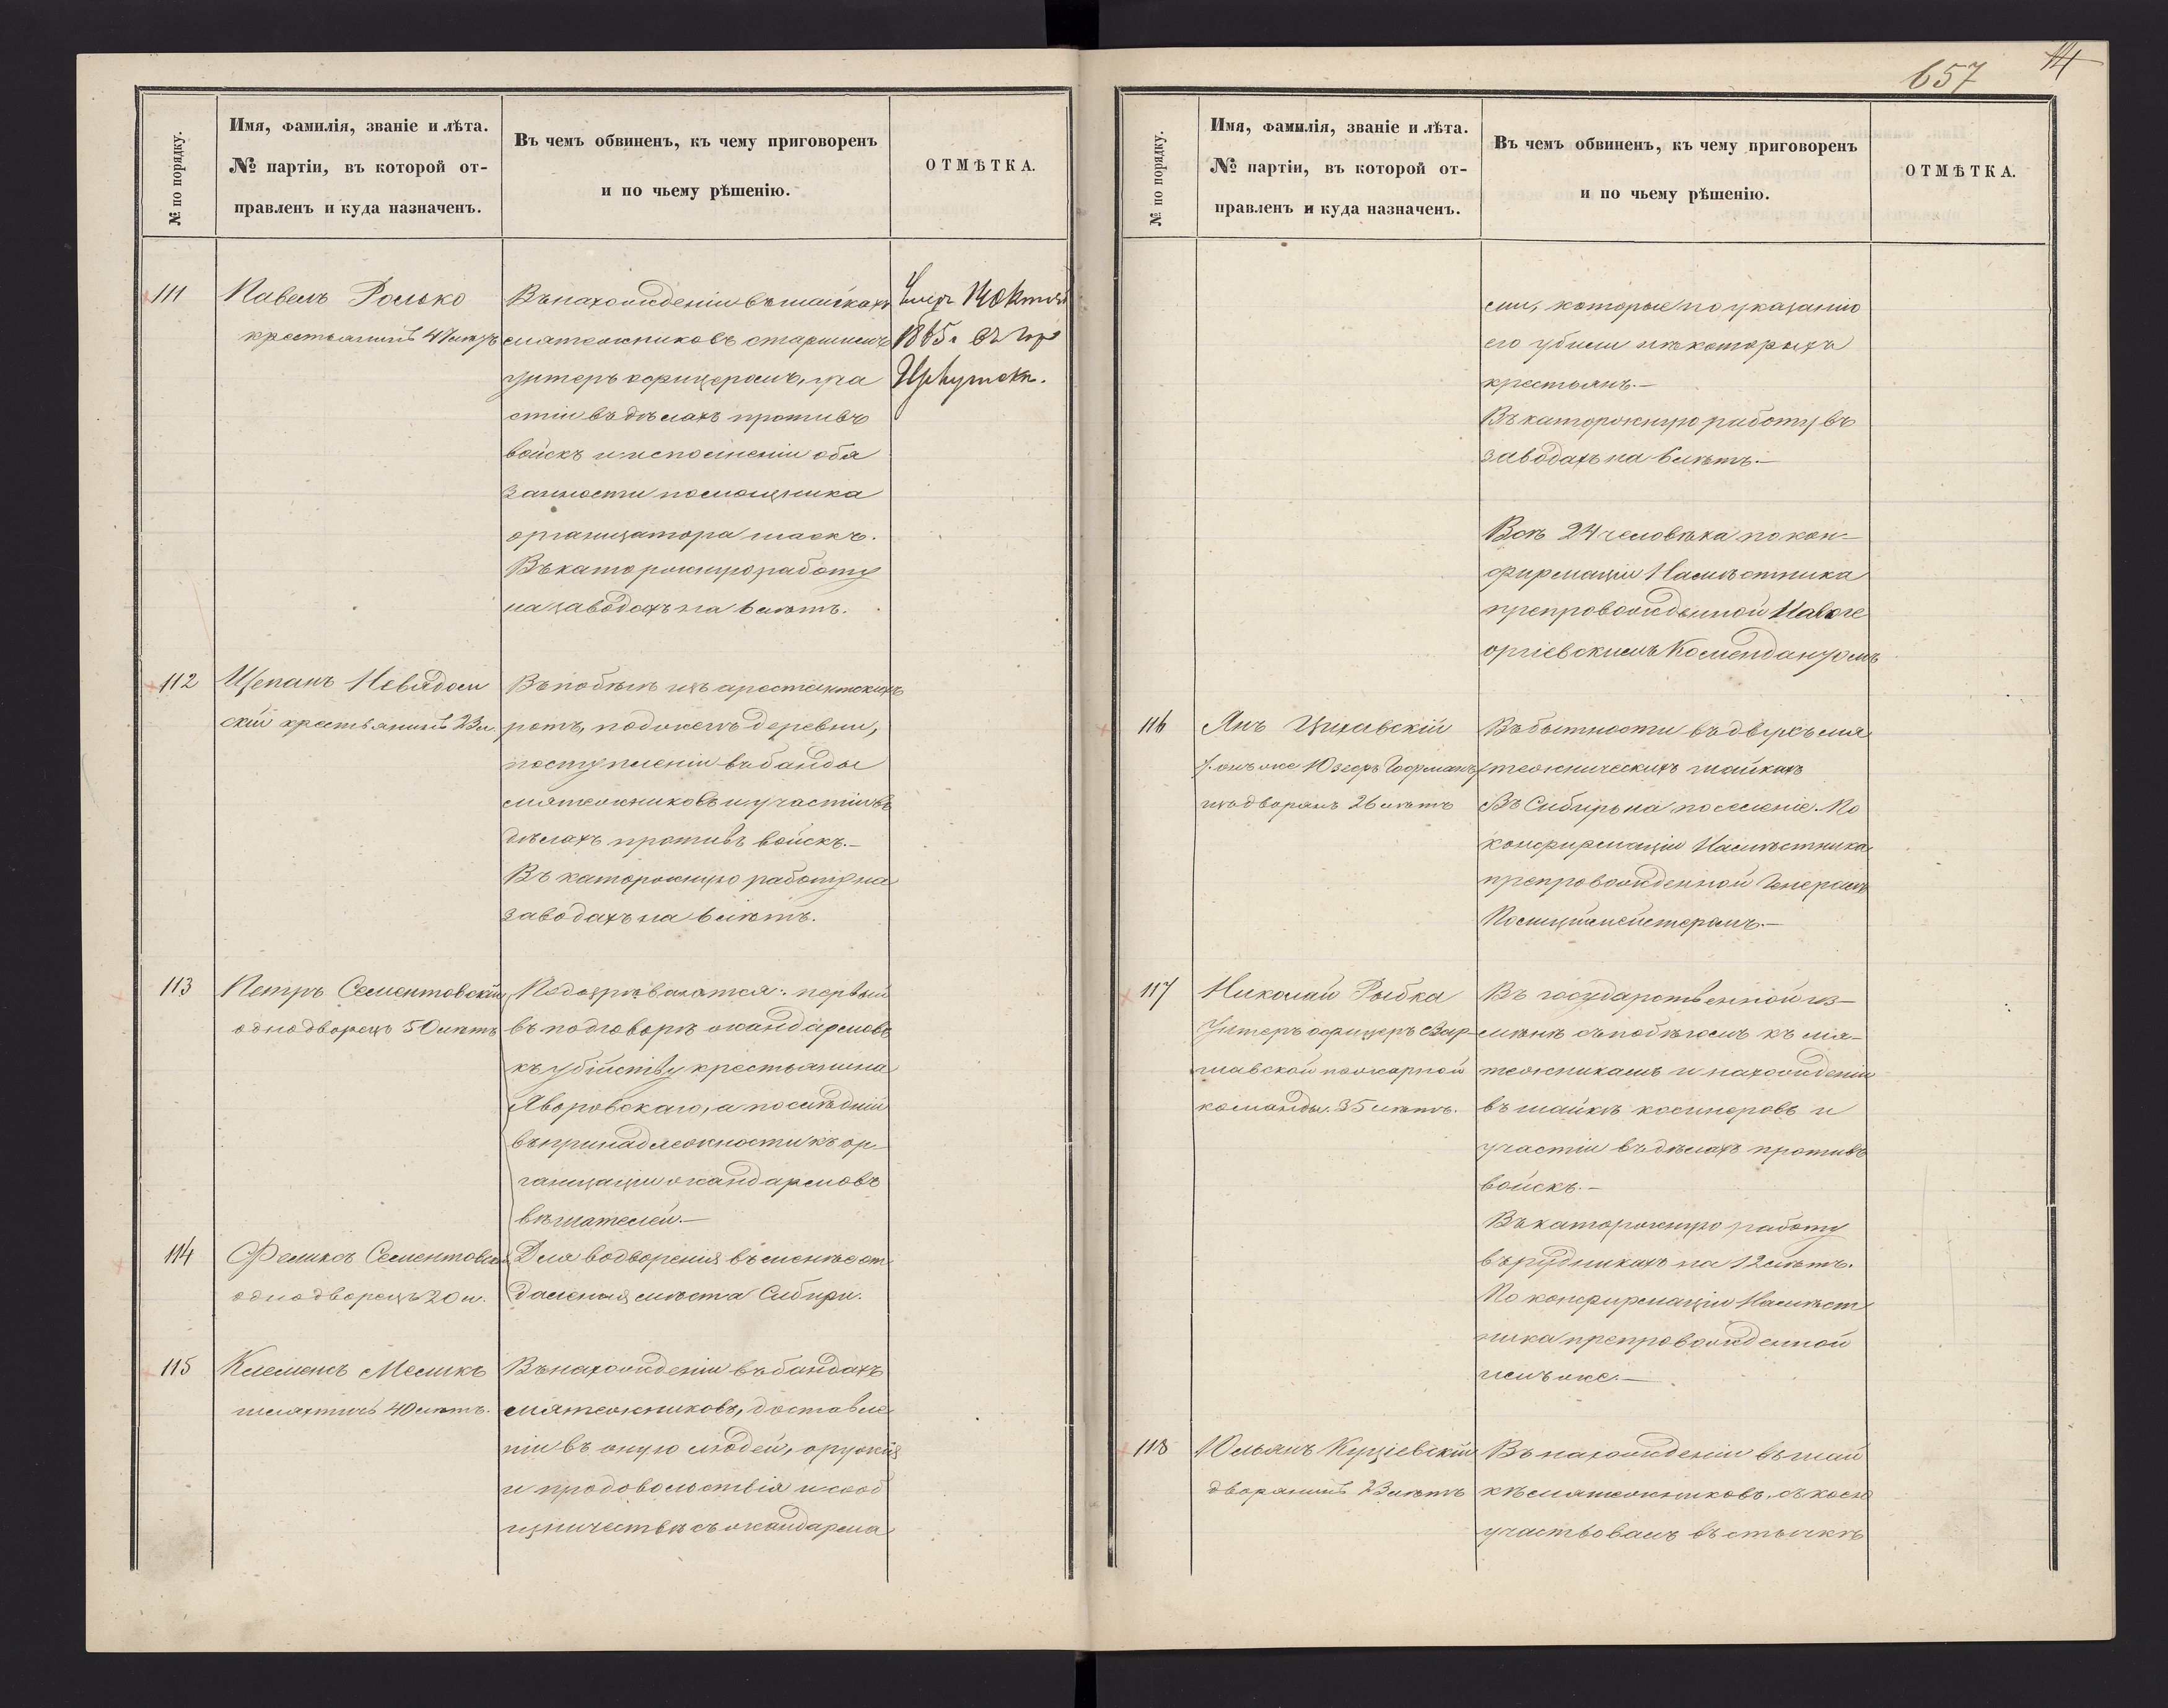 № по порядку.
Имя, фамилія, званіе и лѣта.
№ партіи, въ которой от-
правленъ и куда назначенъ.
Въ чемъ обвиненъ, къ чему приговоренъ
и по чьему рѣшенію.
ОТМѢТКА.
111
Павелъ Ролько
крестьянинъ 47 лѣтъ
Въ нахожденіи въ шайкахъ
мятежниковъ старшимъ
унтеръ офицеромъ, уча
стіи въ дѣлахъ противъ
войскъ и исполненіи обя
занности помощника
организатора шаекъ.
Въ каторжную работу
на заводахъ на 6 лѣтъ.
Умеръ
1865 г. въ гор
Иркутскѣ.
112
Щепанъ Невядом
скій крестьянинъ 23 л.
Въ побѣгѣ изъ арестантскихъ
ротъ, поджегъ деревни,
поступленіи въ банды
мятежниковъ и участіи въ
дѣлахъ противъ войскъ.—
Въ каторжную работу на
заводахъ на 6 лѣтъ.
113
Петръ Сементовскій
однодворецъ 50 лѣтъ
Подозрѣваются: первый
въ подговорѣ жандармовъ
къ убійству крестьянина
Яворовскаго, а послѣдній
въ принадлежности къ ор-
ганизаціи жандармовъ
вѣшателей.—
114
Феликсъ Сементовскій
однодворецъ 20 л.
Для водворенія въ менѣе от
даленныя мѣста Сибири.
115
Клеменсъ Мелихъ
шляхтичъ 40 лѣтъ.
Въ нахожденіи въ бандахъ
мятежниковъ, доставле
ніи въ оную людей, оружія
и продовольствія и сооб
щничествѣ съ жандарма
657
14
№ по порядку.
Имя, фамилія, званіе и лѣта.
№ партіи, въ которой от-
правленъ и куда назначенъ.
Въ чемъ обвиненъ, къ чему приговоренъ
и по чьему рѣшенію.
ОТМѢТКА.
ми, которые по указанію
его убили нѣкоторыхъ
крестьянъ.—
Въ каторжную работу въ
заводахъ на 6 лѣтъ.—
Всѣ 24 человѣка по кон-
фирмаціи Намѣстника
препровожденной Новоге
оргіевскимъ Комендантомъ
116
Янъ Цихавскій
онъ же Юзефъ Гофманъ
изъ дворянъ 26 лѣтъ
Въ бытности въ двухъ мя
тежническихъ шайкахъ
Въ Сибирь на поселеніе. По
конфирмаціи Намѣстника
препровожденной Генералъ
Полицiймейстеромъ.—
117
Николай Рыбка
Унтеръ офицеръ Вар-
шавской пожарной
команды. 35 лѣтъ.
Въ государственной из-
мѣнѣ съ побѣгомъ къ мя-
тежникамъ и нахожденіи
въ шайкѣ косинеровъ и
участіи въ дѣлахъ противъ
войскъ.—
Въ каторжную работу
въ рудникахъ на 12 лѣтъ.
По конфирмаціи Намѣст
ника препровожденной
имъ же.—
118
Юльянъ Куціевскій
дворянинъ 23 лѣтъ
Въ нахожденіи въ шай
кѣ мятежниковъ, съ коею
участвовалъ въ стычкѣ